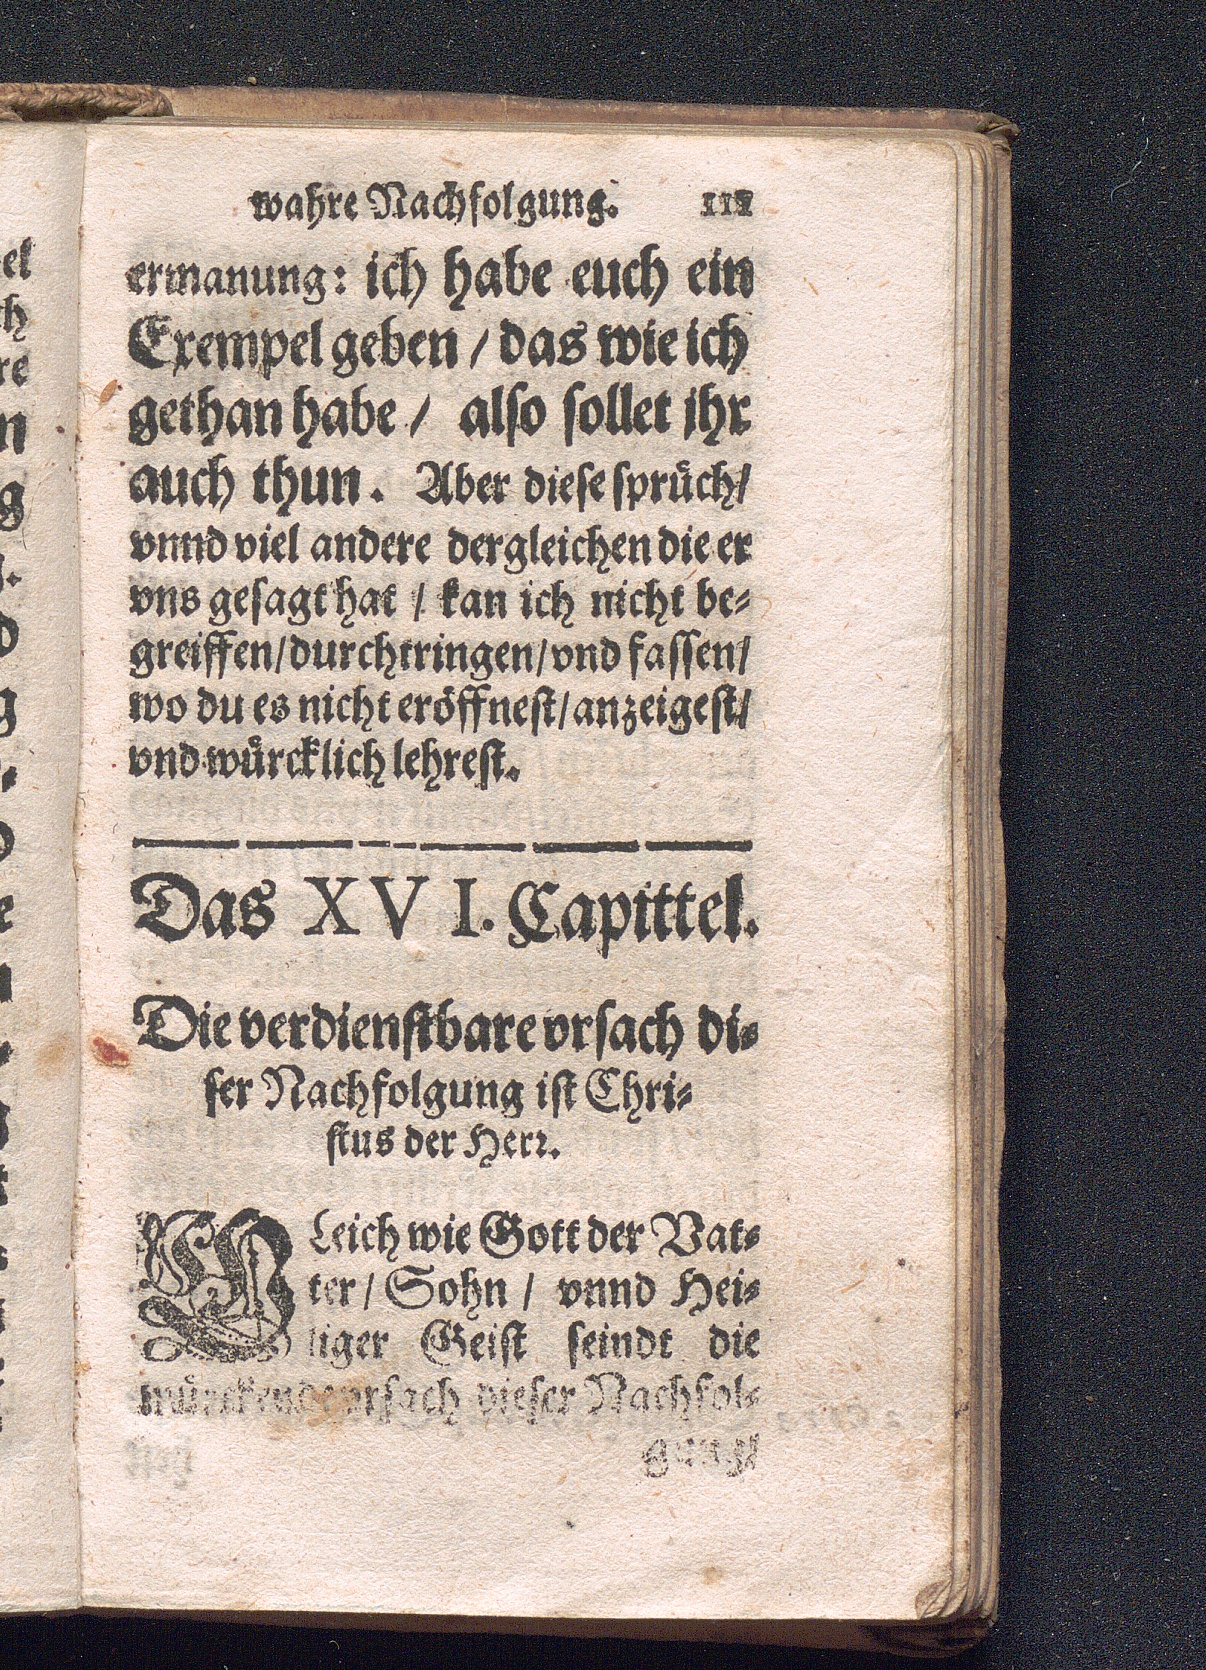 wahre Nachfolgung. 111
ermanung: ich habe euch ein
Exempel geben / das wie ich
gethan habe / also sollet ihr
auch thun. Aber diese sprüch/
vnnd viel andere dergleichen die er
vns gesagt hat / kan ich nicht be-
greiffen/durchtringen/vnd fassen/
wo du es nicht eröffnest/anzeigest/
vnd würcklich lehrest.
Das XVI. Capittel.
Die verdienstbare vrsach di-
ser Nachfolgung ist Chri-
stus der Herr.
GLeich wie Gott der Vat-
ter / Sohn / vnnd Hei-
liger Geist seindt die
würckende vrsach dieser Nachfol-
gung/